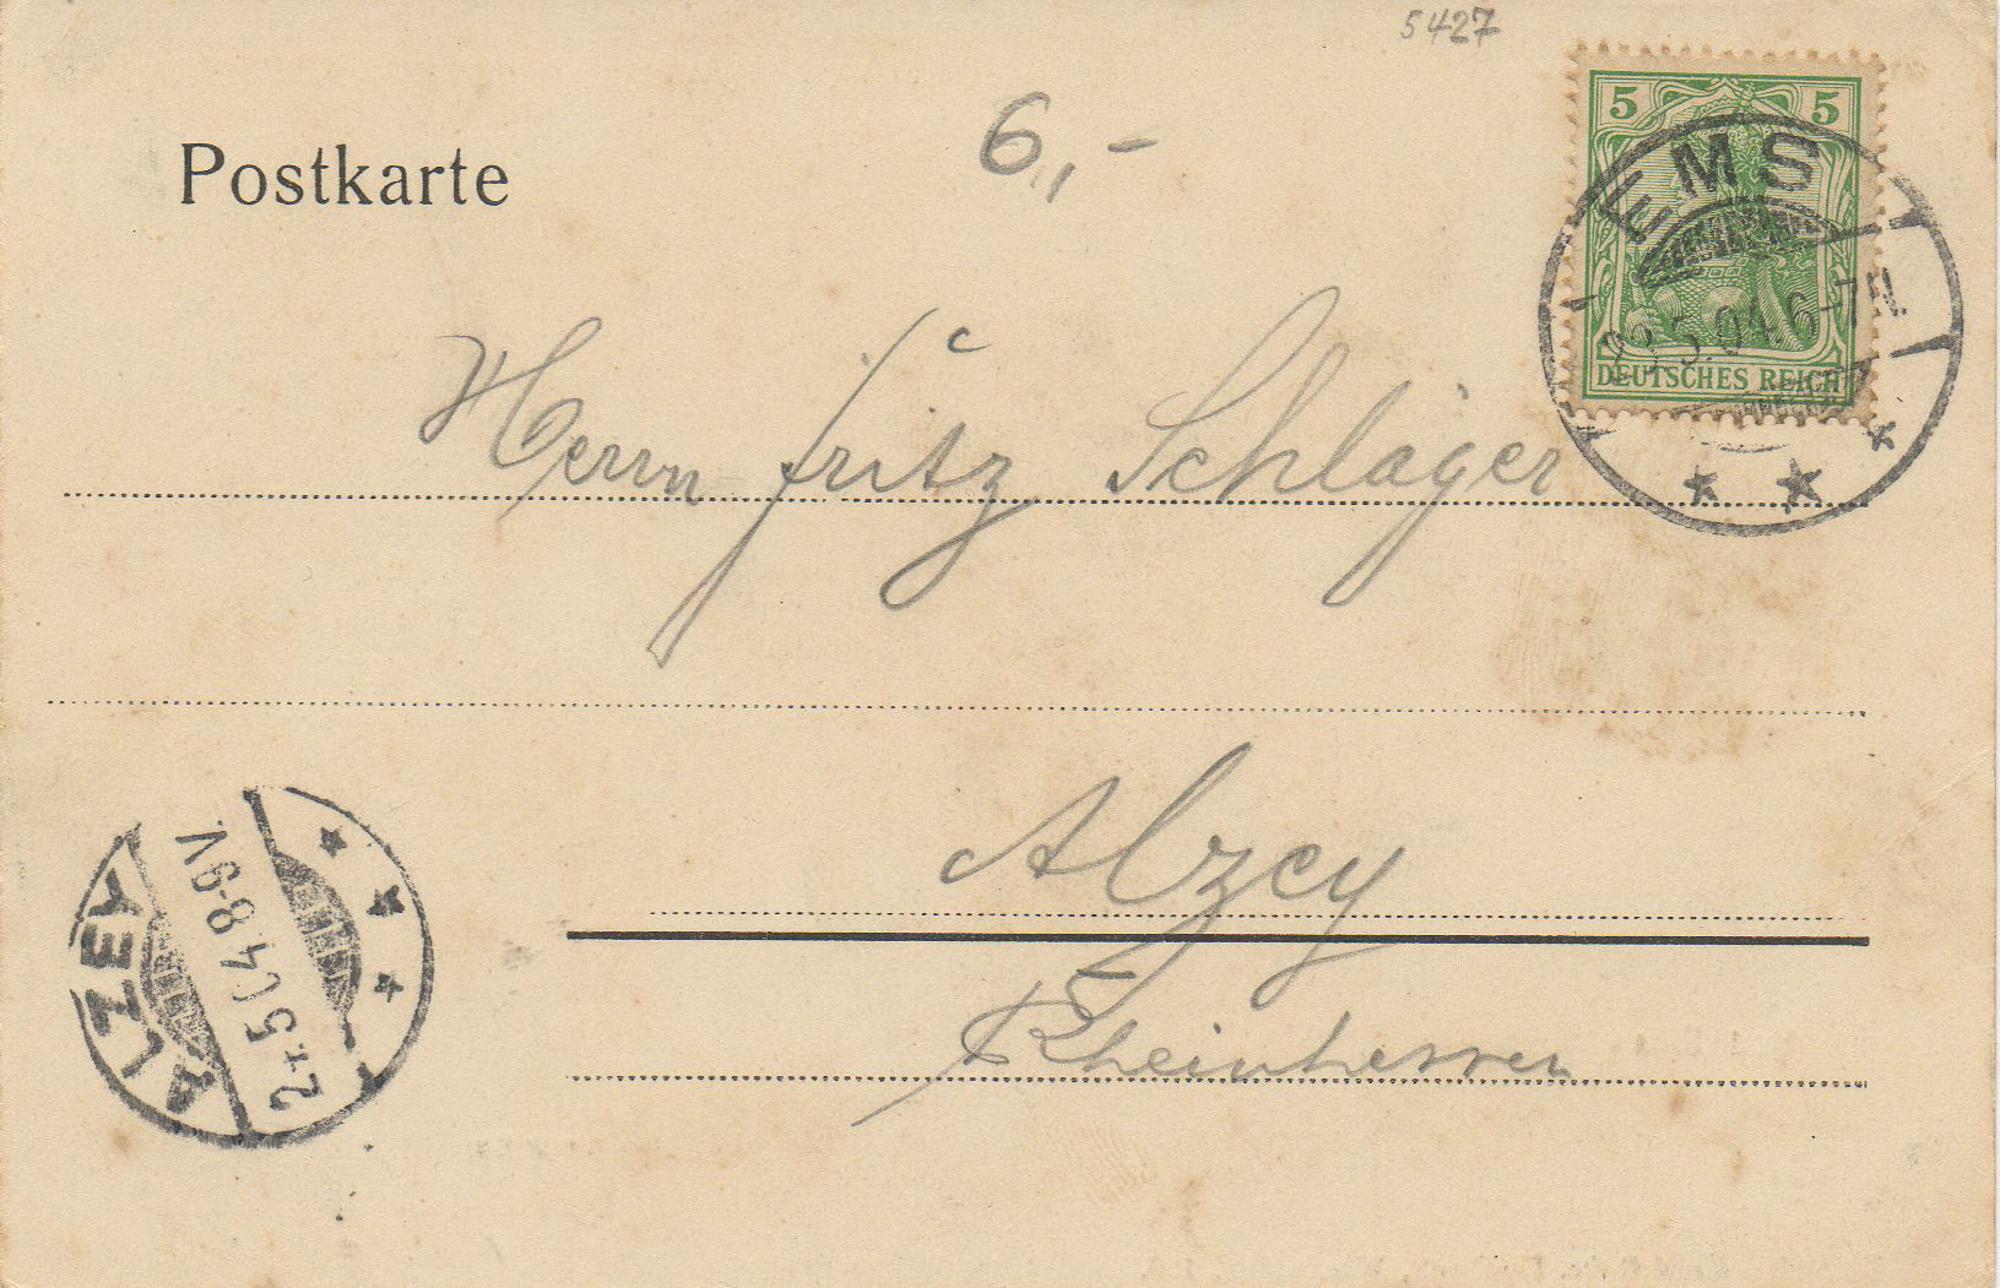 5427
6,-
Postkarte
5 5
DEUTSCHES REICH
EMS
5.04. 6-7N.
Herrn Fritz Schläger
Alzey
Rheinhessen
ALZEY
5 04 8-9V.